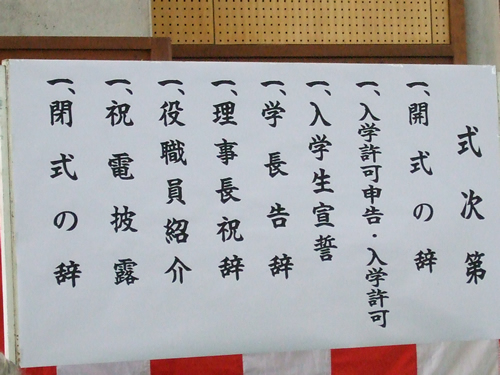 式次第
一、開式の辞
一、入学許可申告・入学許可
一、入学生宣誓
一、学長告辞
一、理事長祝辞
一、役職員紹介
一、祝電披露
一、閉式の辞